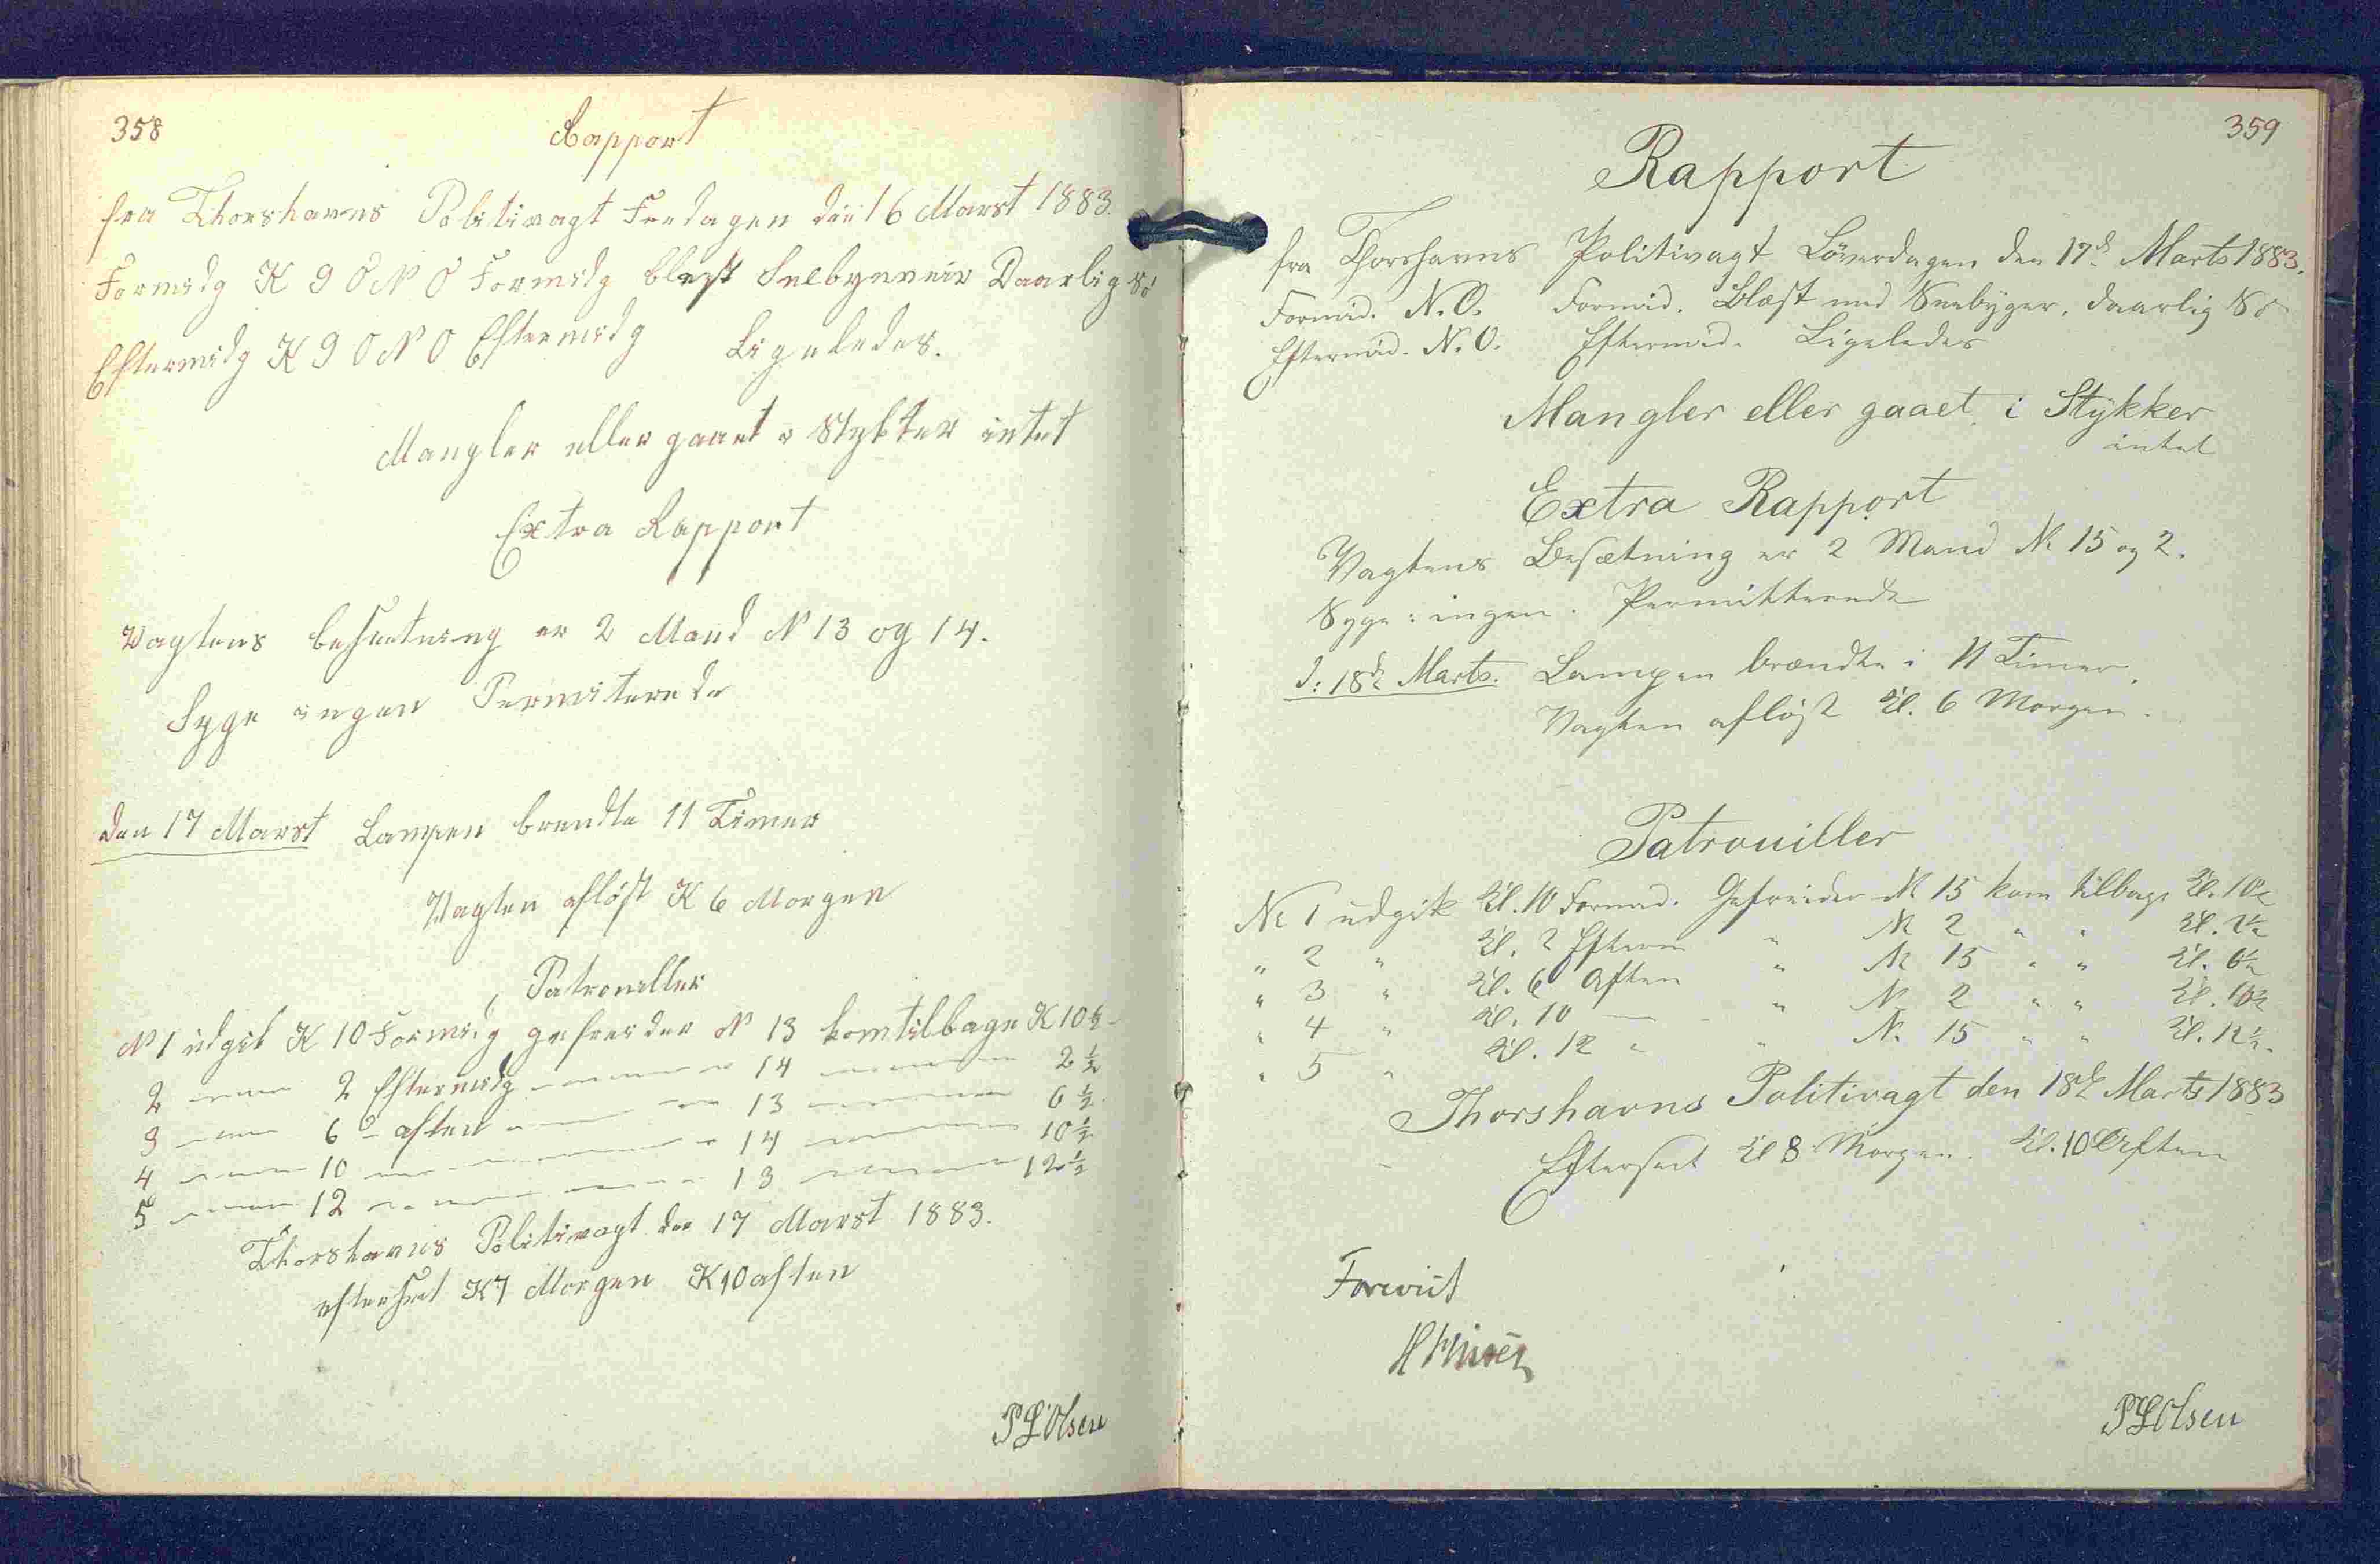 358
Rapport
fra Thorshavns Politivagt Fredagen den 16 Marst 1883.
Formidg K 9 ONO Formidg blest Snebygeveir Daarlig Sö
Eftermidg K 9 ONO Eftermidg Ligeledes.
Mangler eller gaaet i Stykker intet
Extra Rapport
Vagtens besetning er 2 Mand N 13 og 14.
Syge ingen Permiterede
den 17 Marst Lampen brendte 11 Timer
Vagten afløst K 6 Morgen
Patrouller
N 1 udgik K 10 Formidg gefreider N 13 kom tilbage K 10 ½
2 2 Eftermidg 14 2 ½
3 6 aften 13 6 ½
4 10 14 10 ½
5 12 13 12 ½
Thorshavns Politivagt den 17 Marst 1883.
efterset K 7 Morgen K 10 aften
P Olsen
359
Rapport
fra Thorshavns Politivagt Löverdagen den 17d Marts 1883.
Formid. N.O. Formid. Blæst med Sneebyger, daarlig Sö
Eftermid. N.O. Eftermid. Ligeledes
Mangler eller gaaet i Stykker
intet
Extra Rapport
Vagtens Besætning er 2 Mand No 15 og 2.
Syge: ingen. Permitterede
d: 18de Marts. Lampen brændte i 11 Timer.
Vagten afløst Kl. 6 Morgen.
Patrouiller
No 1 udgik Kl. 10 Formid. Gefreider No 15 kom tilbage Kl. 10½
" 2 " Kl. 2 Efterm " No 2 " " Kl. 2½
" 3 " Kl. 6 Aften " No 15 " " Kl. 6½
" 4 " Kl. 10 — " No 2 " " Kl. 10½
" 5 " Kl. 12 " " No 15 " " Kl. 12½.
Thorshavns Politivagt den 18de Marts 1883
Efterseet Kl 8 Morgen. Kl. 10 Aften
Foreviist
P Olsen